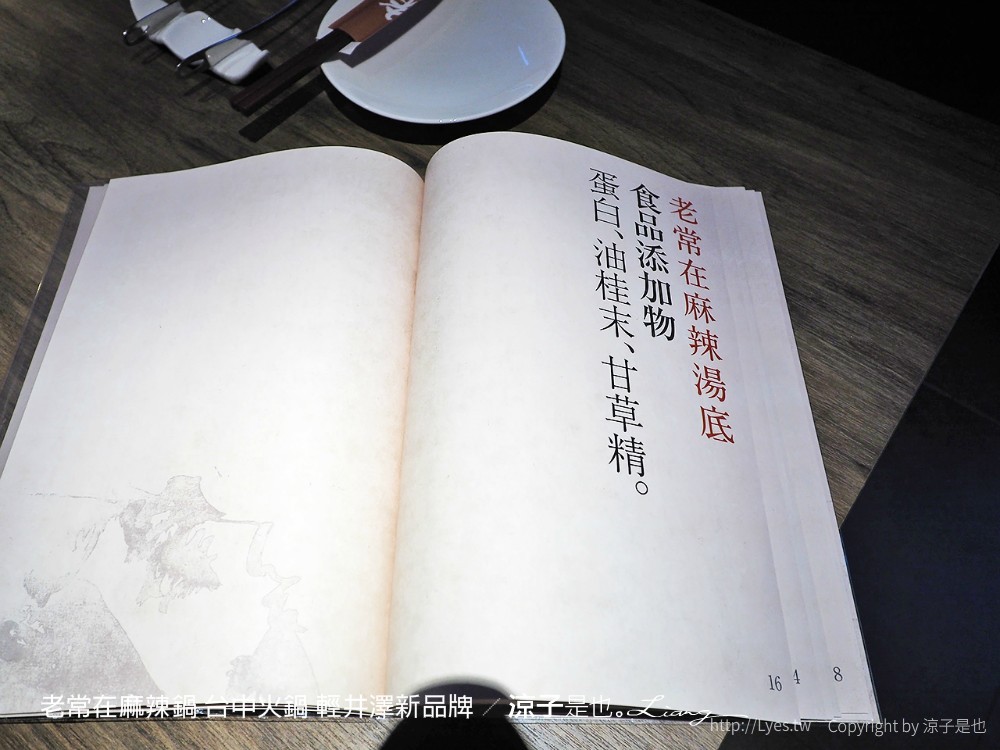 老常在麻辣湯底
食品添加物
蛋白、油桂末、甘草精。
16 4 8
老常在麻辣鍋 台中火鍋 輕井澤新品牌 / 涼子是也。Liang
http://Lyes.tw Copyright by 涼子是也